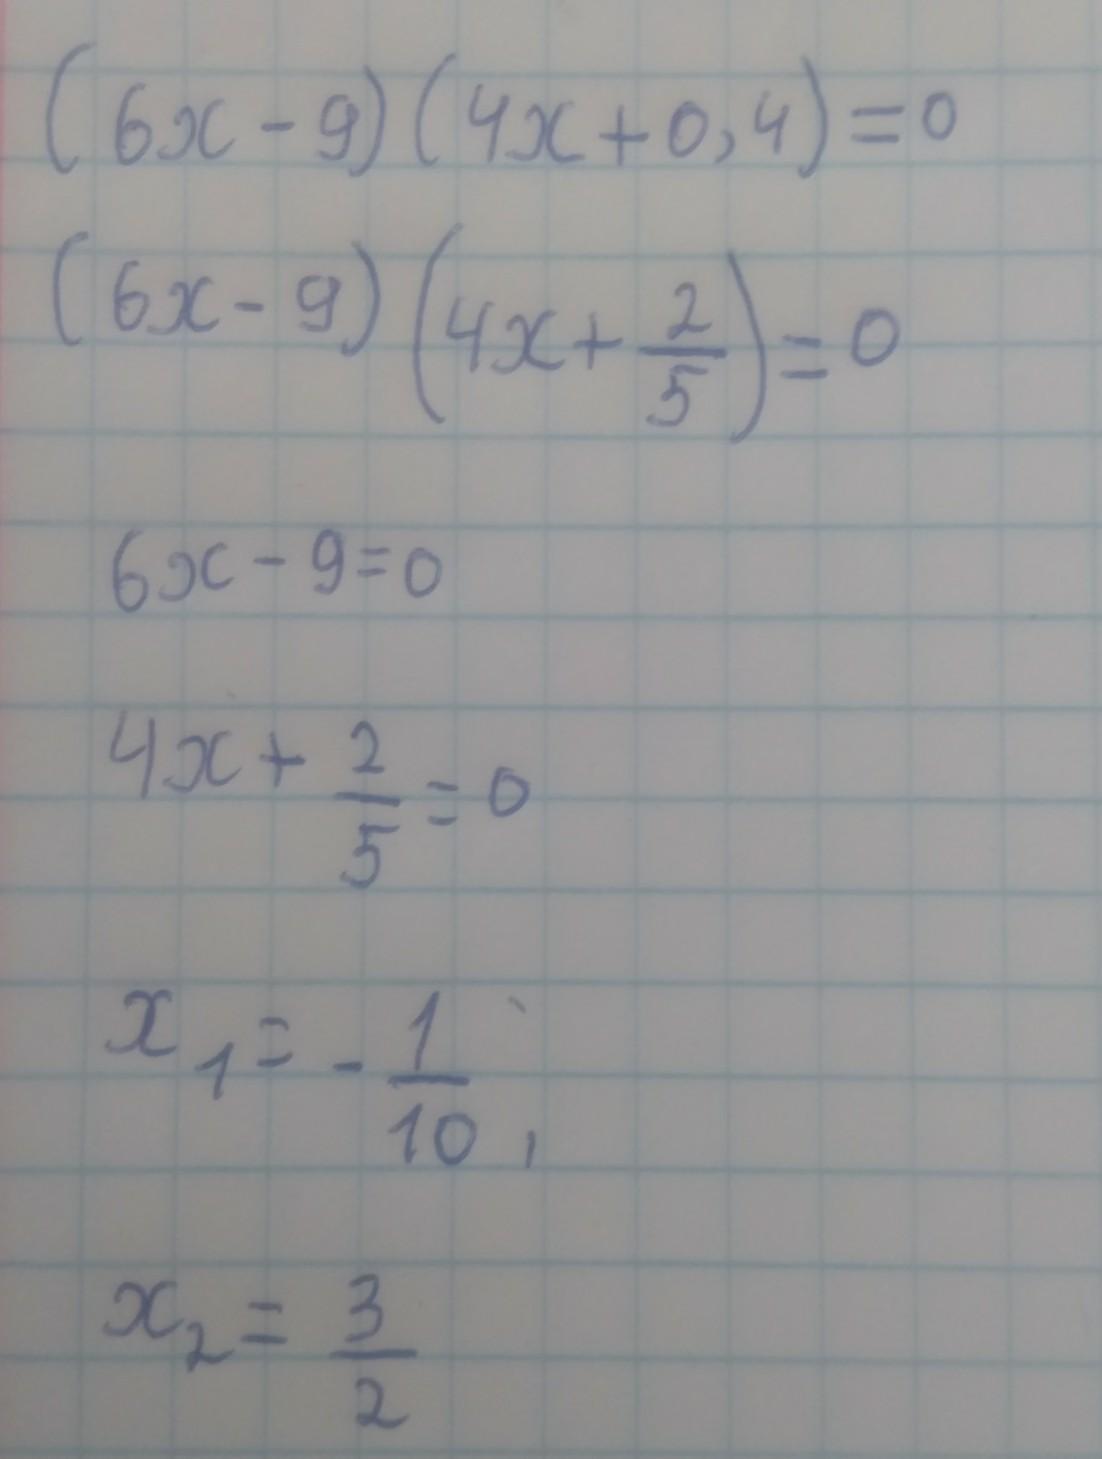 (6x-9)(4x+0,4)=0
(6x-9)(4x+2/5)=0
6x-9=0
4x+2/5=0
x₁=-1/10,
x₂=3/2